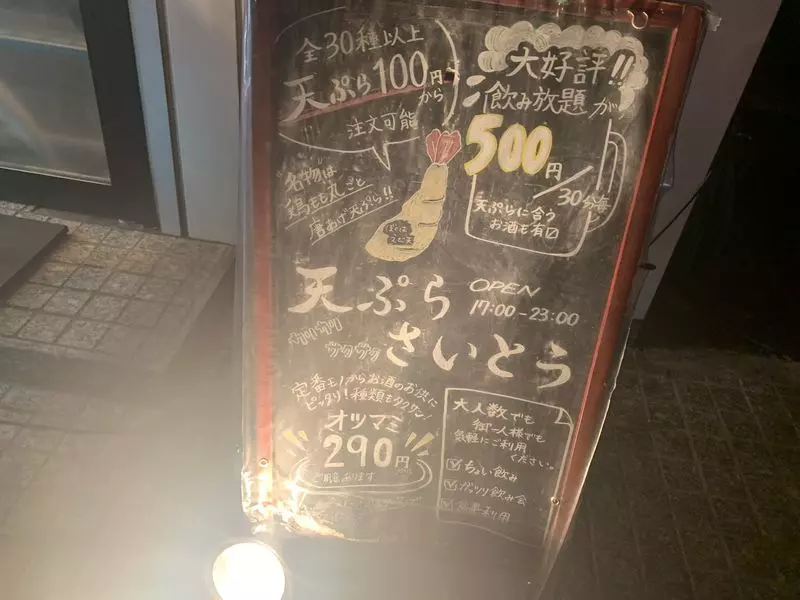 全30種以上
天ぷら100円から
注文可能
大好評!!
飲み放題が
500円/30分毎
天ぷらに合う
お酒も有☑
"名物は
鶏もも丸ごと
唐あげ天ぷら!!
ぼくは
えび天
天ぷら
さいとう
OPEN
17:00-23:00
カリカリ
サクサク
定番モノからお酒のお供に
ピッタリ!種類もタクサン!
オツマミ
290円
ご用意あります
大人数でも
御一人様でも
気軽にご利用
ください。
☑ちょい飲み
☑ガッツリ飲み会
☑食事利用